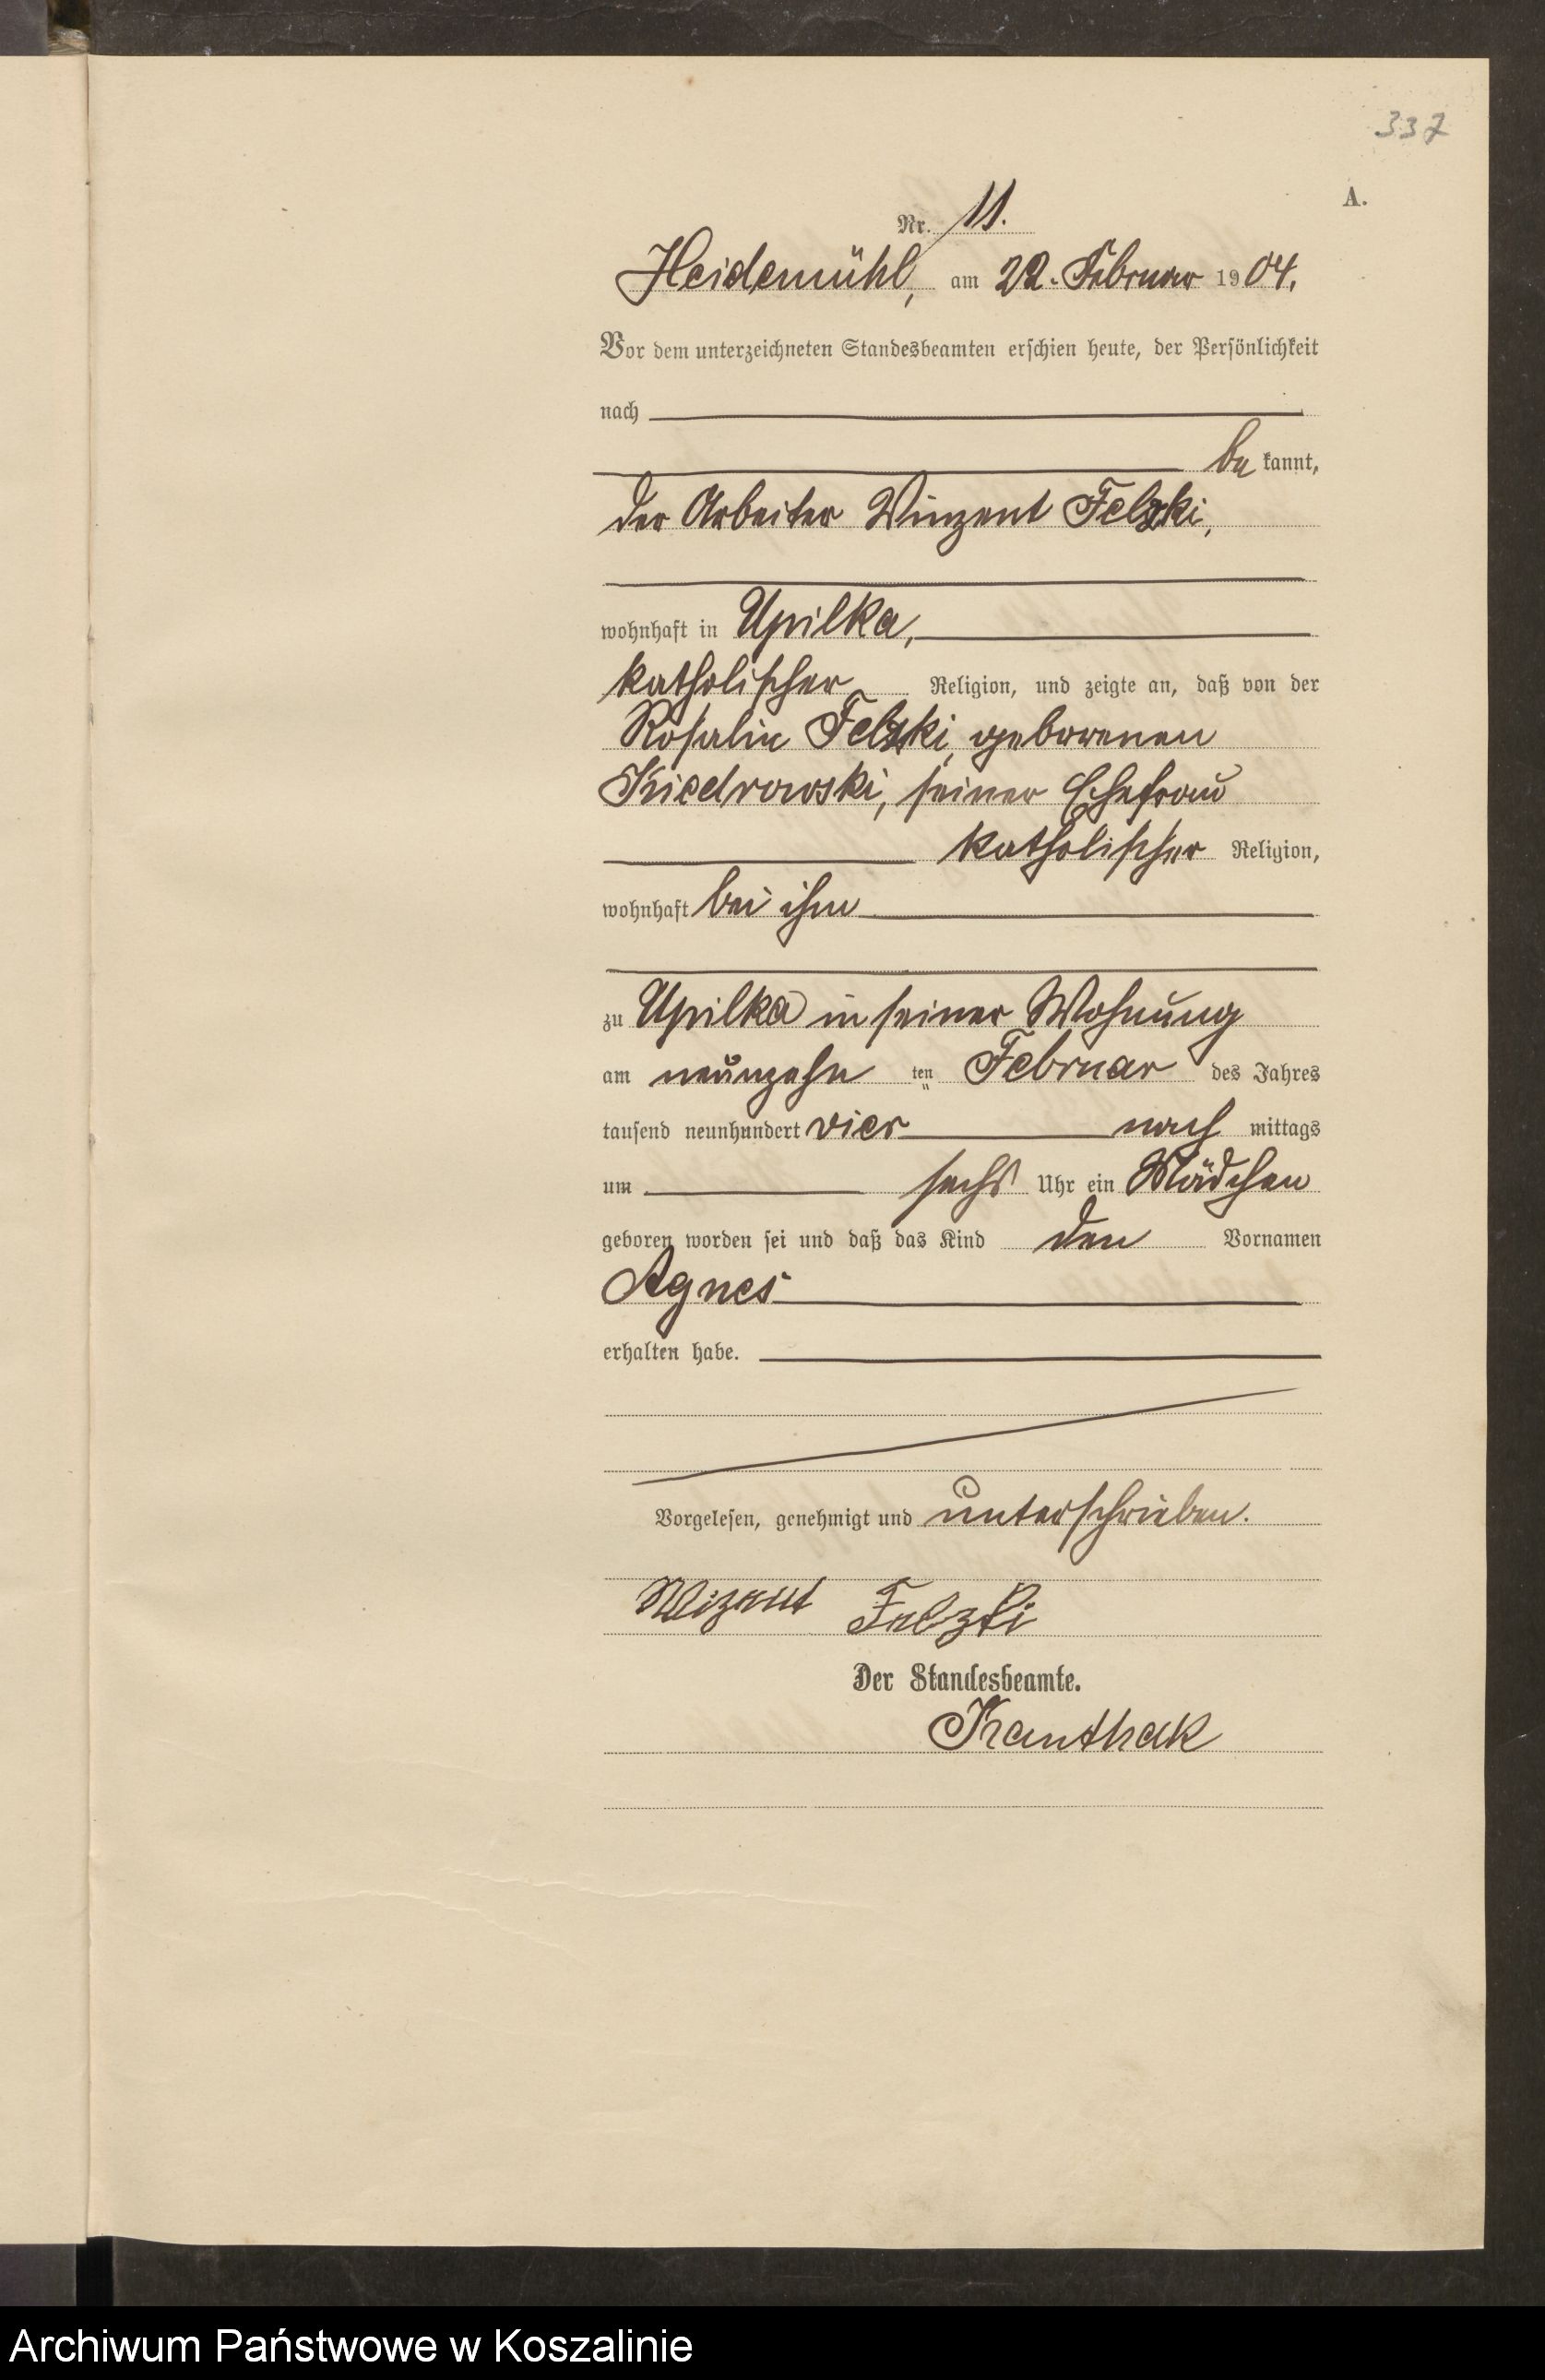 337
A.
Nr. 11.
Heidemühl, am 22. Februar 1904.
Vor dem unterzeichneten Standesbeamten erschien heute, der Persönlichkeit
nach
be kannt,
der Arbeiter Winzent Felzki,
wohnhaft in Upilka,
katholischer Religion, und zeigte an, daß von der
Rosalie Felzki, geborenen
Kiedrowski, seiner Ehefrau
katholischer Religion,
wohnhaft bei ihm
zu Upilka in seiner Wohnung
am neunzehn ten Februar des Jahres
tausend neunhundert vier nach mittags
um sechs Uhr ein Mädchen
geboren worden sei und daß das Kind den Vornamen
Agnes
erhalten habe.
Vorgelesen, genehmigt und unterschrieben.
Wizent Felzki
Der Standesbeamte.
Kranthak
Archiwum Państwowe w Koszalinie